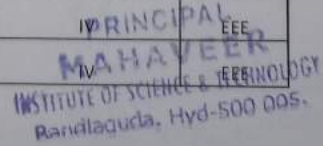 IV EEE
PRINCIPAL
IV EEE
MAHAVEER
INSTITUTE OF SCIENCE & TECHNOLOGY
Bandlaguda, Hyd-500 005.